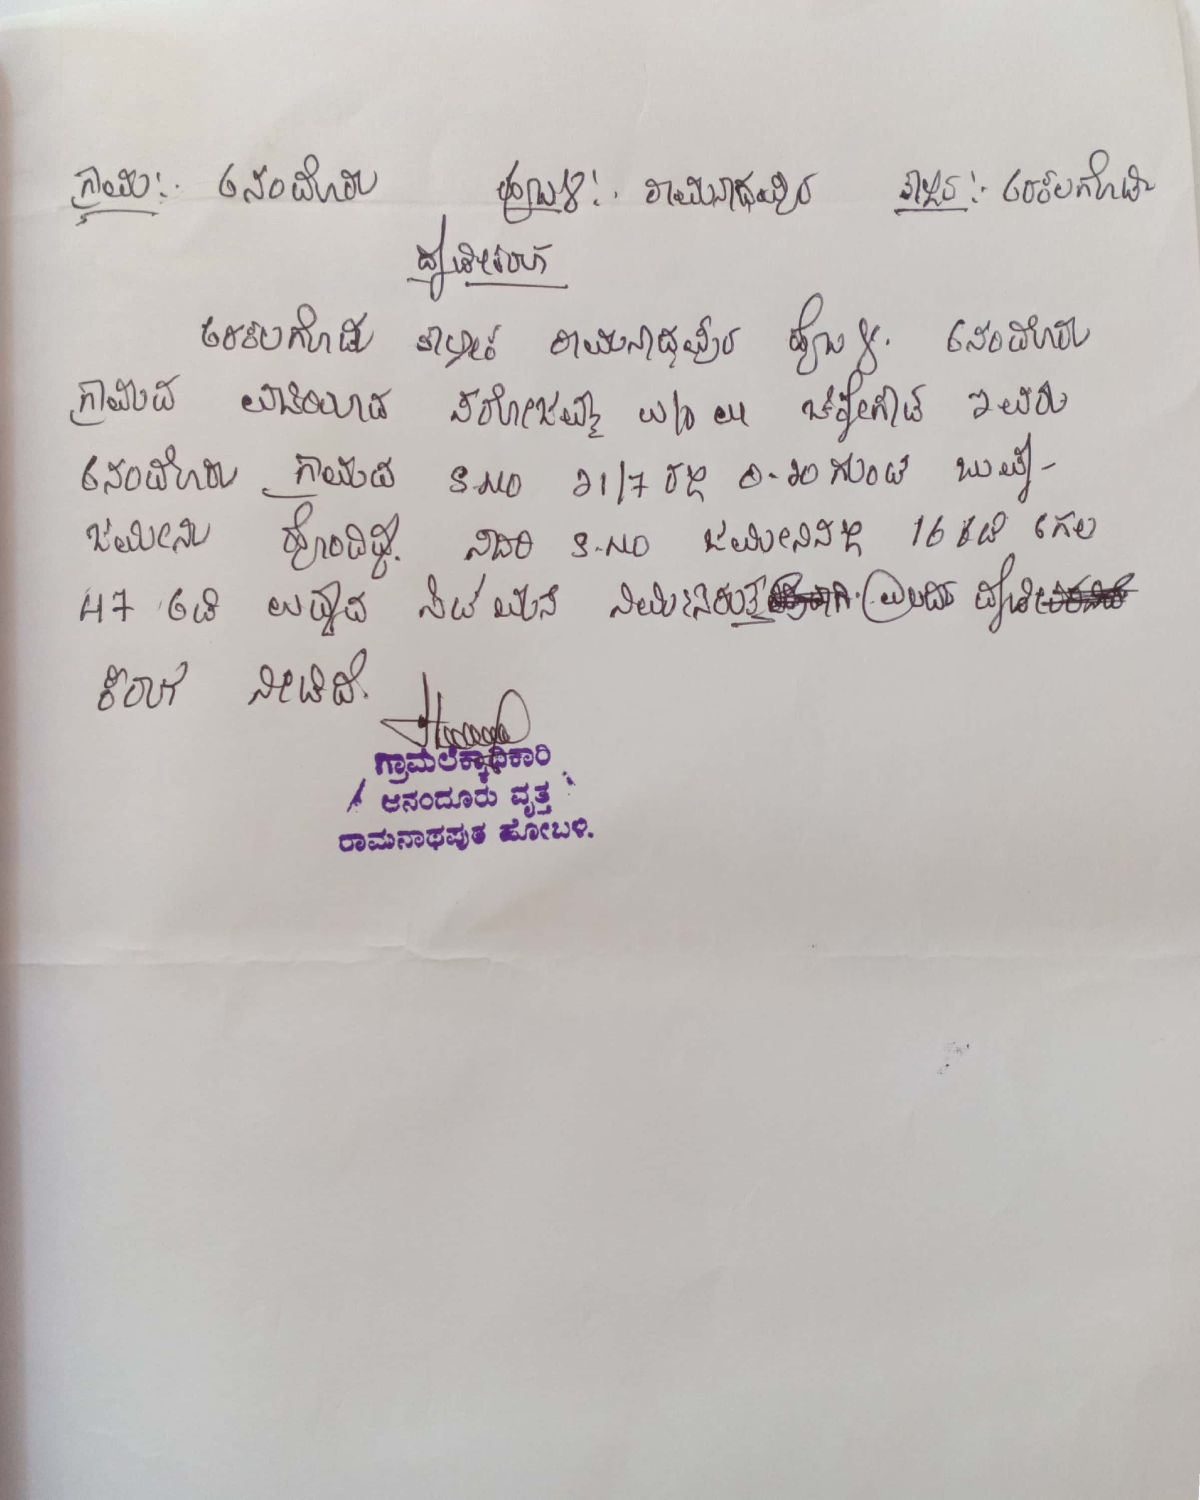 ಗ್ರಾಮ:- ಆನಂದೂರು ಹೋಬಳಿ:- ರಾಮನಾಥಪುರ ತಾಲ್ಲೂಕು:- ಅರಕಲಗೂಡು
ದೃಢೀಕರಣ
ಅರಕಲಗೂಡು ತಾಲ್ಲೂಕು ರಾಮನಾಥಪುರ ಹೋಬಳಿ. ಆನಂದೂರು
ಗ್ರಾಮದ ಸರೋಜಮ್ಮ ಇವರು
ಆನಂದೂರು ಗ್ರಾಮದ S.NO 21/7 ರಲ್ಲಿ 0-20 ಗುಂಟೆ
ಜಮೀನು ಹೊಂದಿದ್ದು. ಸದರಿ S.NO ಜಮೀನಿನಲ್ಲಿ 16 ಅಡಿ ಅಗಲ
47 ಅಡಿ ಉದ್ದದ ಮನೆ
ಕರಣ ನೀಡಿದೆ.
ಗ್ರಾಮಲೆಕ್ಕಾಧಿಕಾರಿ
ಆನಂದೂರು ವೃತ್ತ
ರಾಮನಾಥಪುರ ಹೋಬಳಿ.